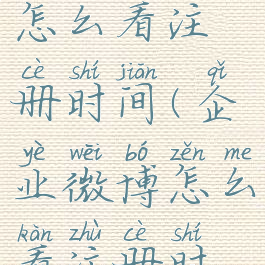 怎么看注
cè shí jiān qǐ
册时间(企
yè wēi bó zěn me
业微博怎么
kàn zhù cè shí
看注册时